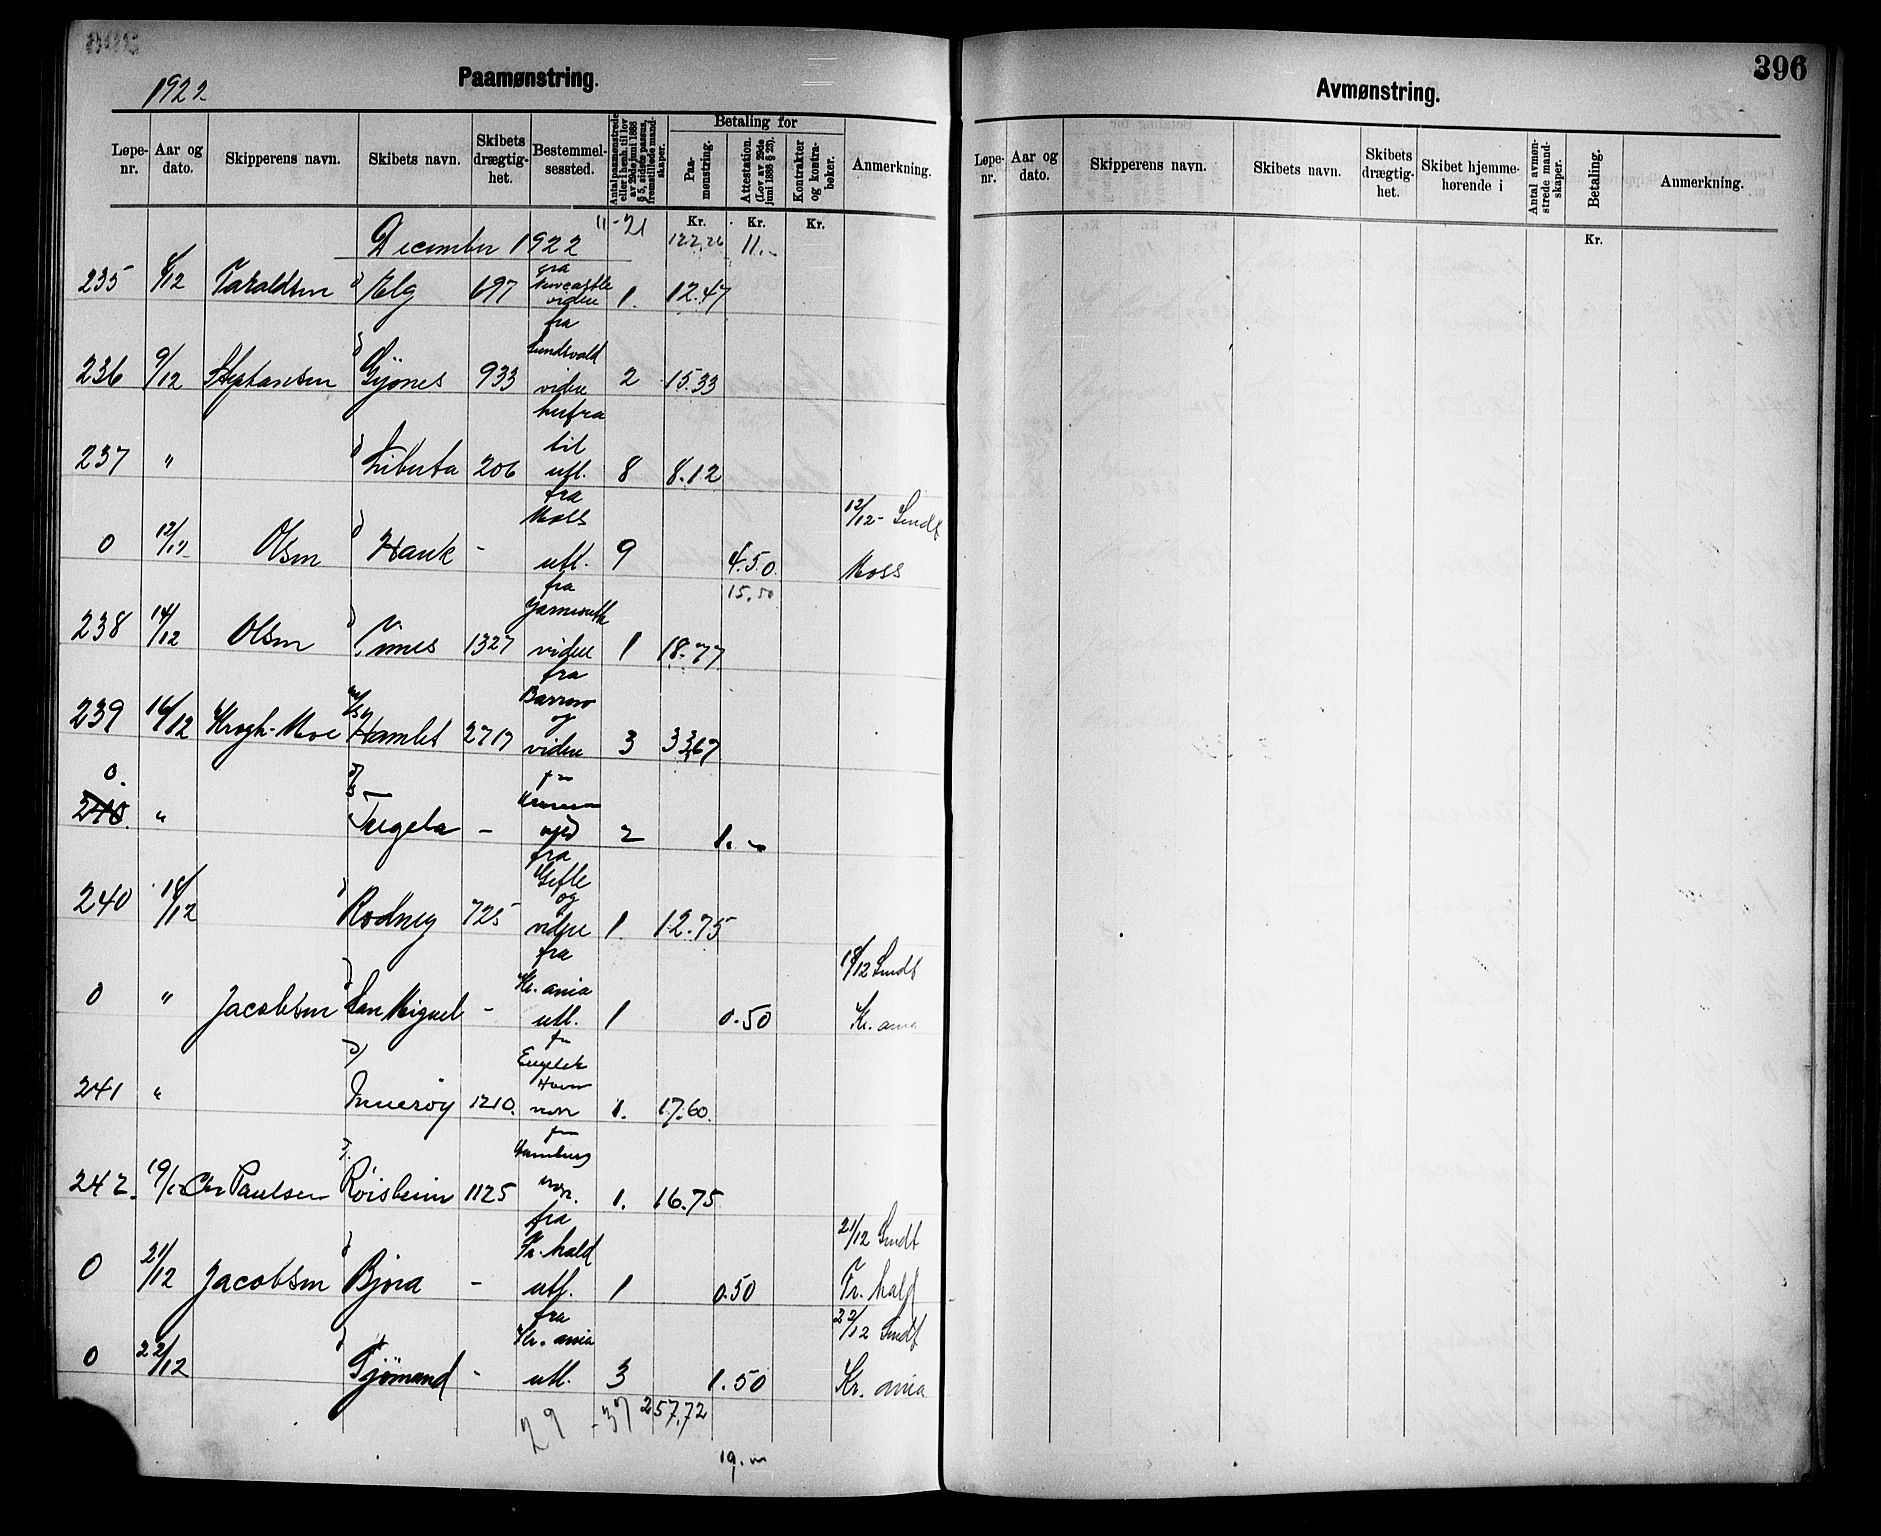 396
1922
Paamønstring.
Løpe-nr. Aar og dato. Skipperens navn. Skibets navn. Skibets drægtig-het. Bestemmel-sessted. Antal paamønstrede eller i henh. til lov av 29de juni 1888 § 5, sidste passus, fremstillede mand-skaper. Betaling for Paa-mønstring. Attestation. (Lov av 29de juni 1888 § 23). Kontrakter og kontra-bøker. Anmerkning.
Kr. Kr. Kr.
December 1922 11-21 122,26 11.-
235 8/12 Taraldsen Elg 697 fra Newcastle videre 1. 12.47
236 9/12 Stephansen Gjønes 933 fra Sundsvald videre 2 15.33
237 " Liberta 206 herfra til utl. 8 8.12
0 12/12 Olsen Hauk - fra Moss utl. 9 4.50 12/12- Sendt Moss
15,50
238 14/12 Olsen 1327 fra Yarmouth videre 1 18.77
239 16/12 Krogh-Moe Hamlet 2717 fra Barrow og videre 3 33,67
0 240 " Tugela - 2 1.-
240 18/12 Rodney 725 fra Gefle og videre 1 12.75
0 " Jacobsen San Miguel - fra Kr. ania utl. 1 0.50 18/12 Sendt Kr. ania
241 " Inuerøy 1210. 1. 17.60.
242. 19/12 Chr Paulsen Roisheim 1125 fra Hamburg 1. 16.75
0 21/12 Jacobsen Bjora - fra Fr. hald utl. 1 0.50 21/12 Sendt Fr. hald
0 22/12 Tjömand - fra Kr. ania utl. 3 1.50 22/12 Sendt Kr. ania
29 -37 257,72
19.-
Avmønstring.
Løpe-nr. Aar og dato. Skipperens navn. Skibets navn. Skibets drægtig-het. Skibet hjemme-hørende i Antal avmøn-strede mand-skaper. Betaling. Anmerkning.
Kr.